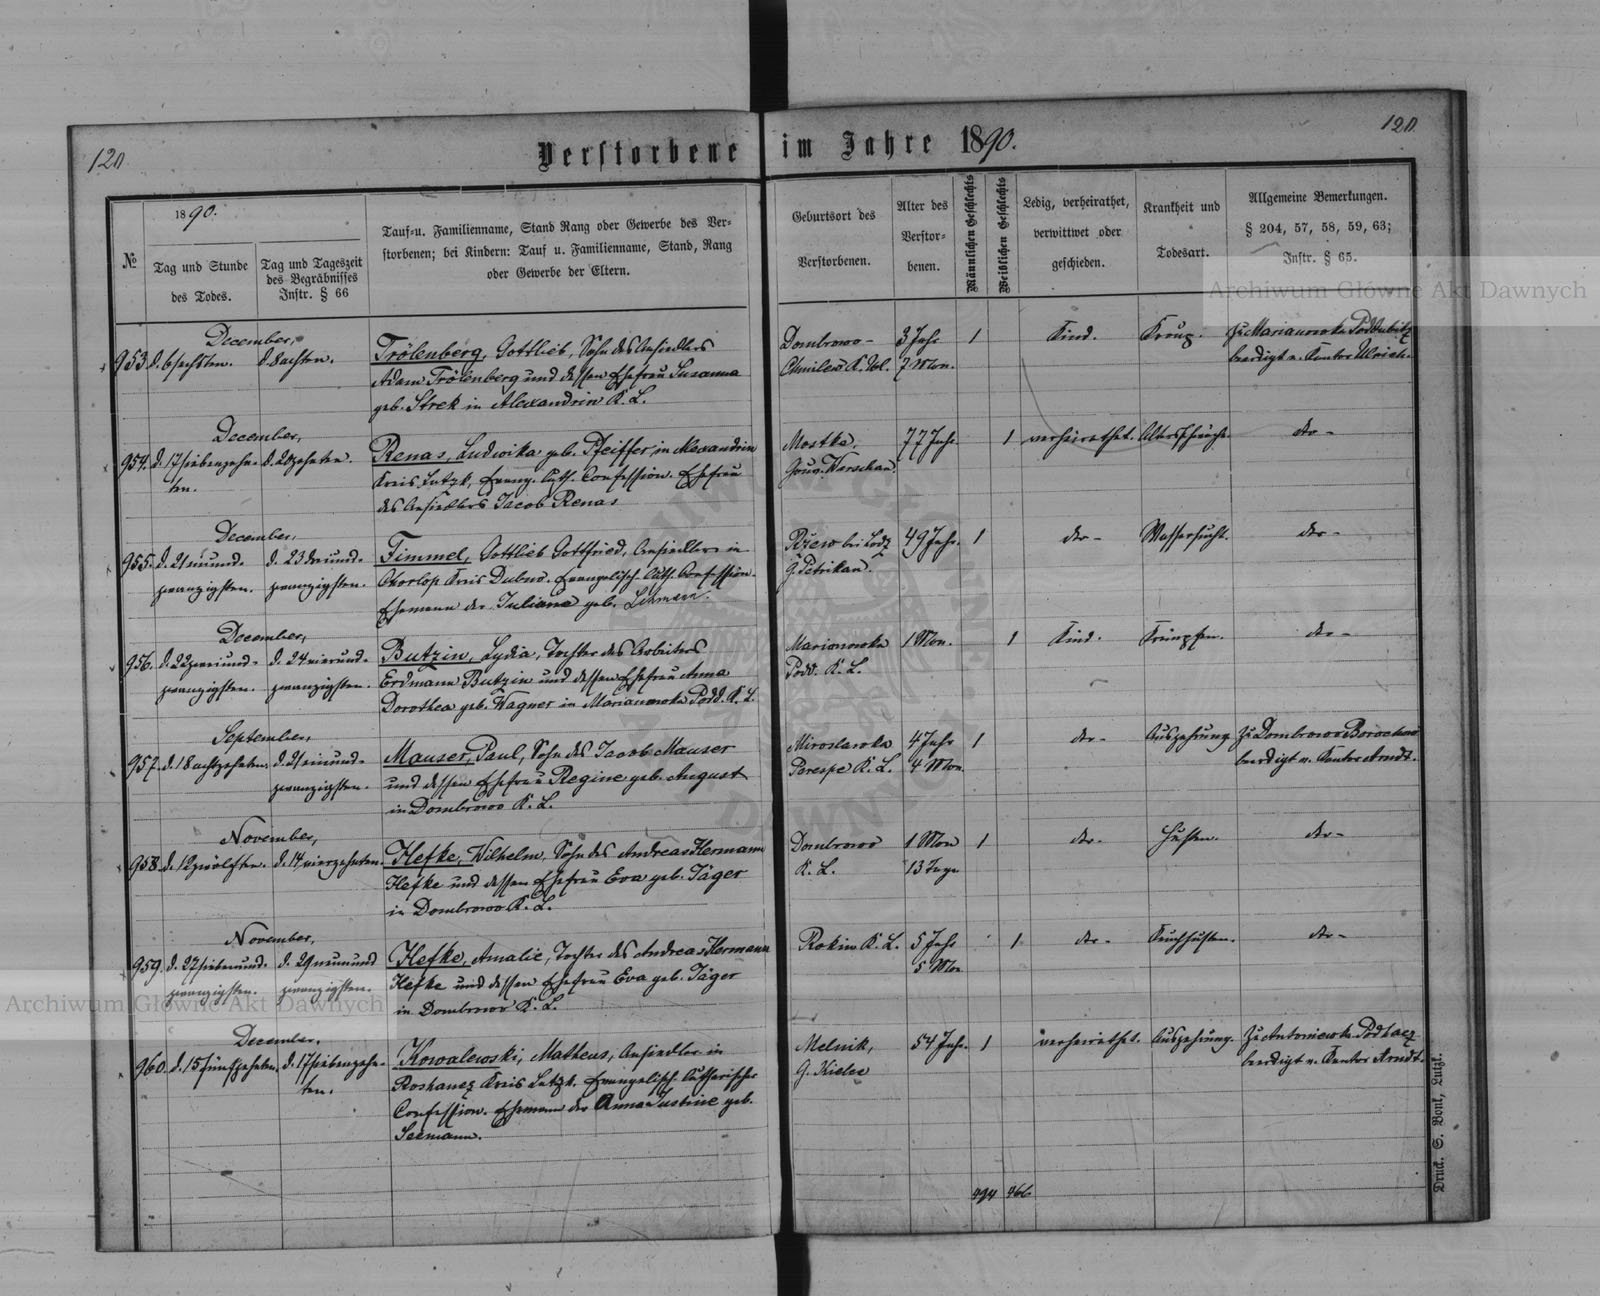 120.
Verstorbene im Jahre 1890.
120.
№
1890.
Tag und Stunde
des Todes.
Tag und Tageszeit
des Begräbnisses
Instr. § 66
Tauf-u. Familienname, Stand Rang oder Gewerbe des Ver-
storbenen; bei Kindern: Tauf u. Familienname, Stand, Rang
oder Gewerbe der Eltern.
Geburtsort des
Verstorbenen.
Alter des
Verstor-
benen.
Männlichen Geschlechts
Weiblichen Geschlechts
Ledig, verheirathet,
verwittwet oder
geschieden.
Krankheit und
Todesart.
Allgemeine Bemerkungen.
§ 204, 57, 58, 59, 63;
Instr. § 65.
December,
953. d. 6 sechsten. d. 8 achten.
Trölenberg, Gottlieb, Sohn des Ansiedlers
Adam Trölenberg und dessen Ehefrau Susanna
geb. Strek in Alexandrin K. L.
Dombrowo-
Chmilew K. Wl.
3 Jahr
7 Mon.
1
Kind.
Kroup.
Zu Marianowka Poddubitz
beerdigt v. Kantor Ulrich.
December,
954. d. 17 siebenzehn- d. 20 zehnten.
ten.
Renas, Ludwika geb. Pfeiffer, in Alexandrin
Kreis Lutzk, Evang. Luth. Confession. Ehefrau
des Ansiedlers Jacob Renas
Mostke,
Gouv. Warschau.
77 Jahr.
1
verheirathet.
Altersschwäche
dto-
December,
955. d. 21 einund- d. 23 dreiund-
zwanzigsten. zwanzigsten.
Timmel, Gottlieb Gottfried, Ansiedler in
Okorlop Kreis Dubno. Evangelisch-Luth. Confession.
Ehemann der Juliana geb. Lehmann.
Rżew bei Lodz
G. Petrikau.
49 Jahr.
1
dto-
Wassersucht.
dto-
December,
956. d. 22 zweiund- d. 24 vierund-
zwanzigsten. zwanzigsten.
Butzin, Lydia, Tochter des Arbeiters
Erdmann Butzin und dessen Ehefrau Anna
Dorothea geb. Wagner in Marianowka Podd. K. L.
Marianowka
Podd. K. L.
1 Mon.
1
Kind.
Krämpfen.
dto-
September,
957. d. 18 achtzehnten. d. 21 einund-
zwanzigsten.
Mauser, Paul, Sohn des Jacob Mauser
und dessen Ehefrau Regine geb. August
in Dombrowo K. L.
Miroslawka
Perespe K. L.
4 Jahr
4 Mon.
1
dto-
Auszehrung.
Zu Dombrowo Borochow
beerdigt v. Kantor Arndt.
November,
958. d. 12 zwölften. d. 14 vierzehnten.
Hefke, Wilhelm, Sohn des Andreas Hermann
Hefke und dessen Ehefrau Eva geb. Jäger
in Dombrowo K. L.
Dombrowo
K. L.
1 Mon
13 Tage
1
dto-
Husten.
dto-
November,
959. d. 27 siebenund- d. 29 neunund
zwanzigsten. zwanzigsten.
Hefke, Amalie, Tochter des Andreas Hermann
Hefke und dessen Ehefrau Eva geb. Jäger
in Dombrowo K. L.
Rokin K. L.
5 Jahr
5 Mon
1
dto-
Keuchhusten.
dto-
December,
960. d. 15 fünfzehnten. d. 17 siebenzehn-
ten.
Kowalewski, Matheus, Ansiedler in
Roshanez Kreis Lutzk. Evangelisch Lutherischer
Confession. Ehemann der Anna Justine geb.
Seemann.
Melnik,
G. Kielce
54 Jahr.
1
verheirathet.
Auszehrung.
Zu Antoniewka Podhaez
beerdigt v. Kantor Arndt.
494 466
Druck. S. Bonk, Lutzk.
Archiwum Główne Akt Dawnych
Archiwum Główne Akt Dawnych